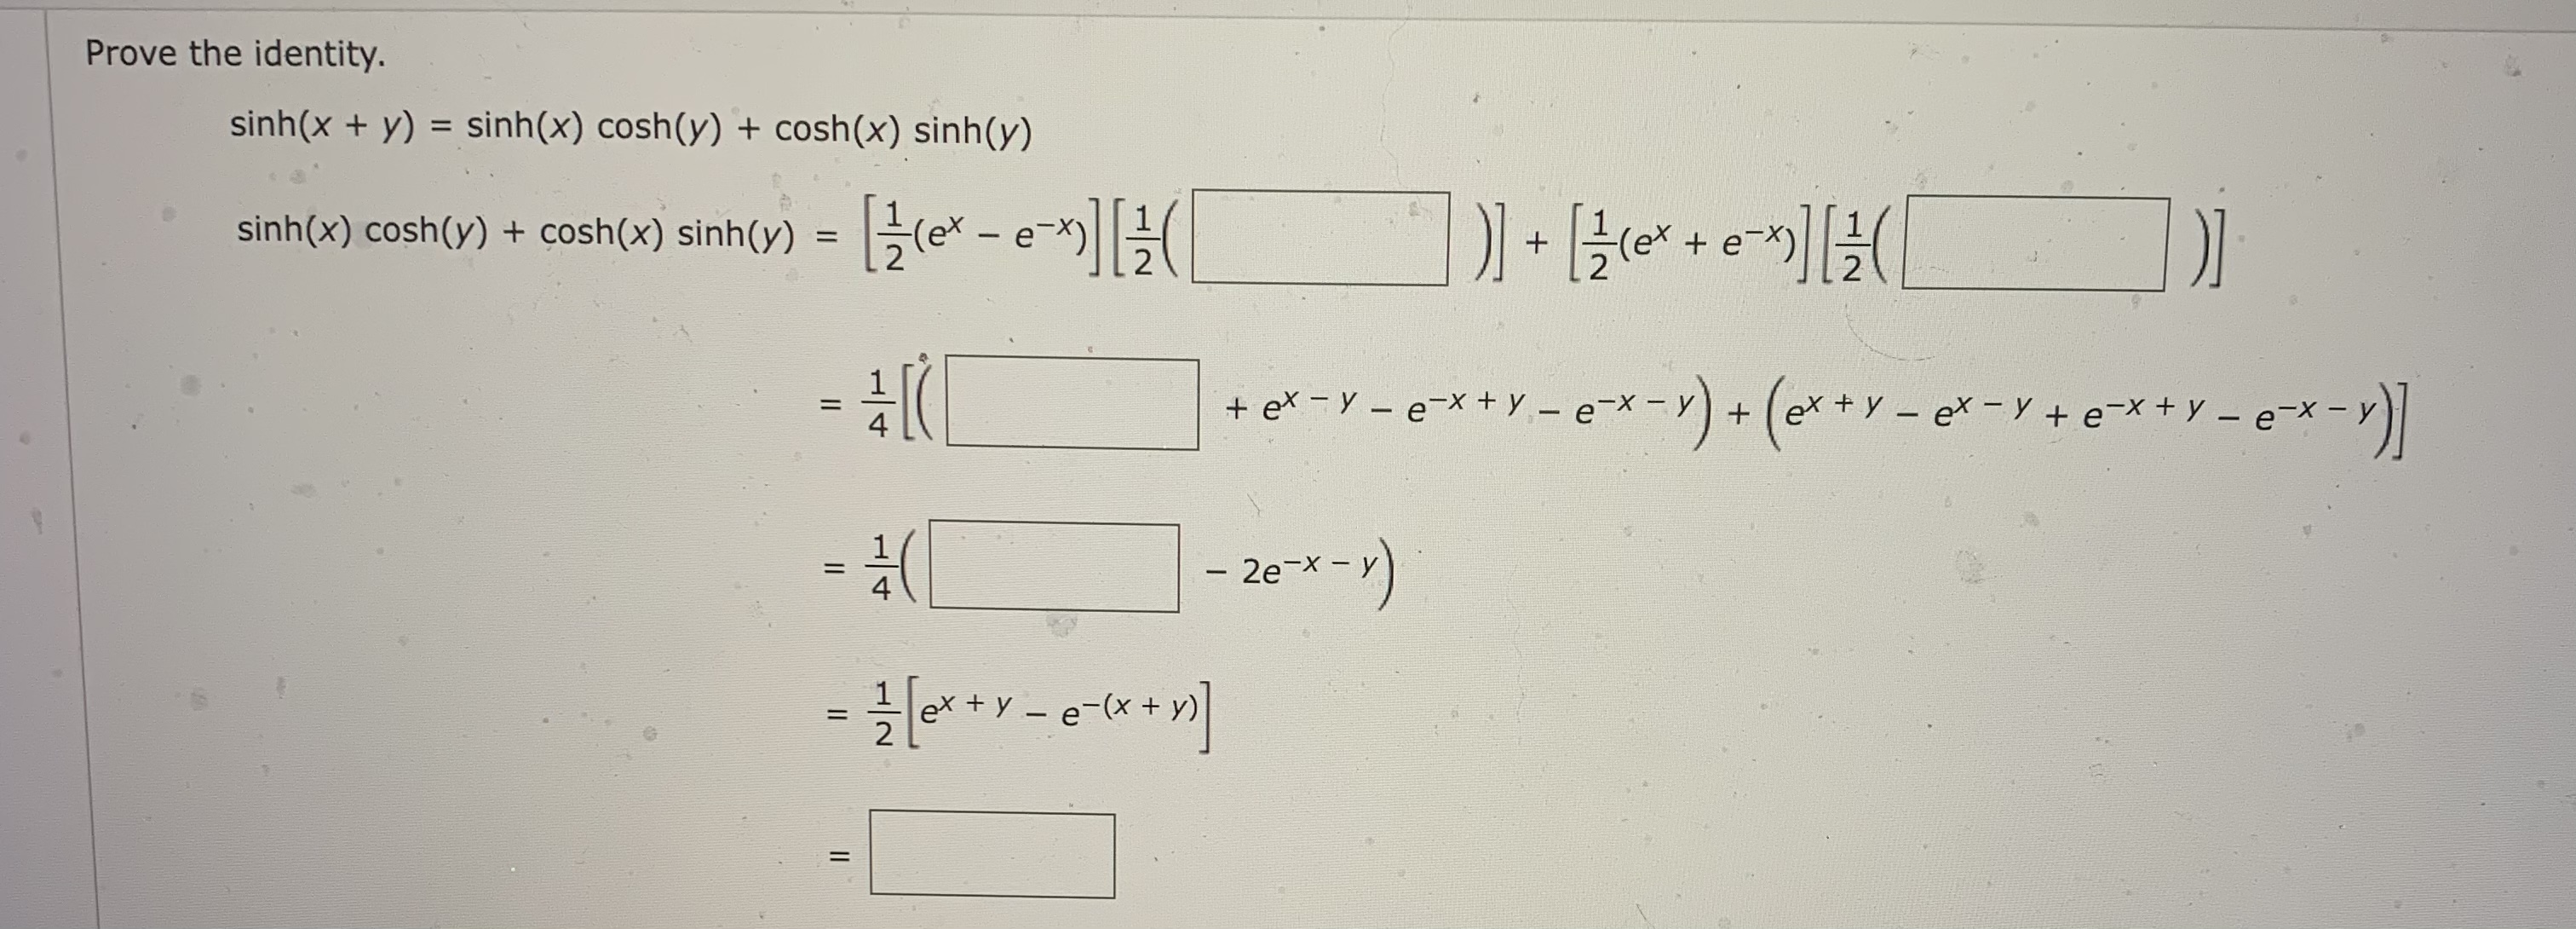 Prove the identity.
sinh(x + y) = sinh(x) cosh(y) + cosh(x) sinh(y)
sinh(x) cosh(y) + cosh(x) sinh(y) = [1/2(e^x − e^−x)][1/2( )] + [1/2(e^x + e^−x)][1/2( )]
= 1/4[( + e^x − y − e^−x + y − e^−x − y) + (e^x + y − e^x − y + e^−x + y − e^−x − y)]
= 1/4( − 2e^−x − y)
= 1/2[e^x + y − e^−(x + y)]
=